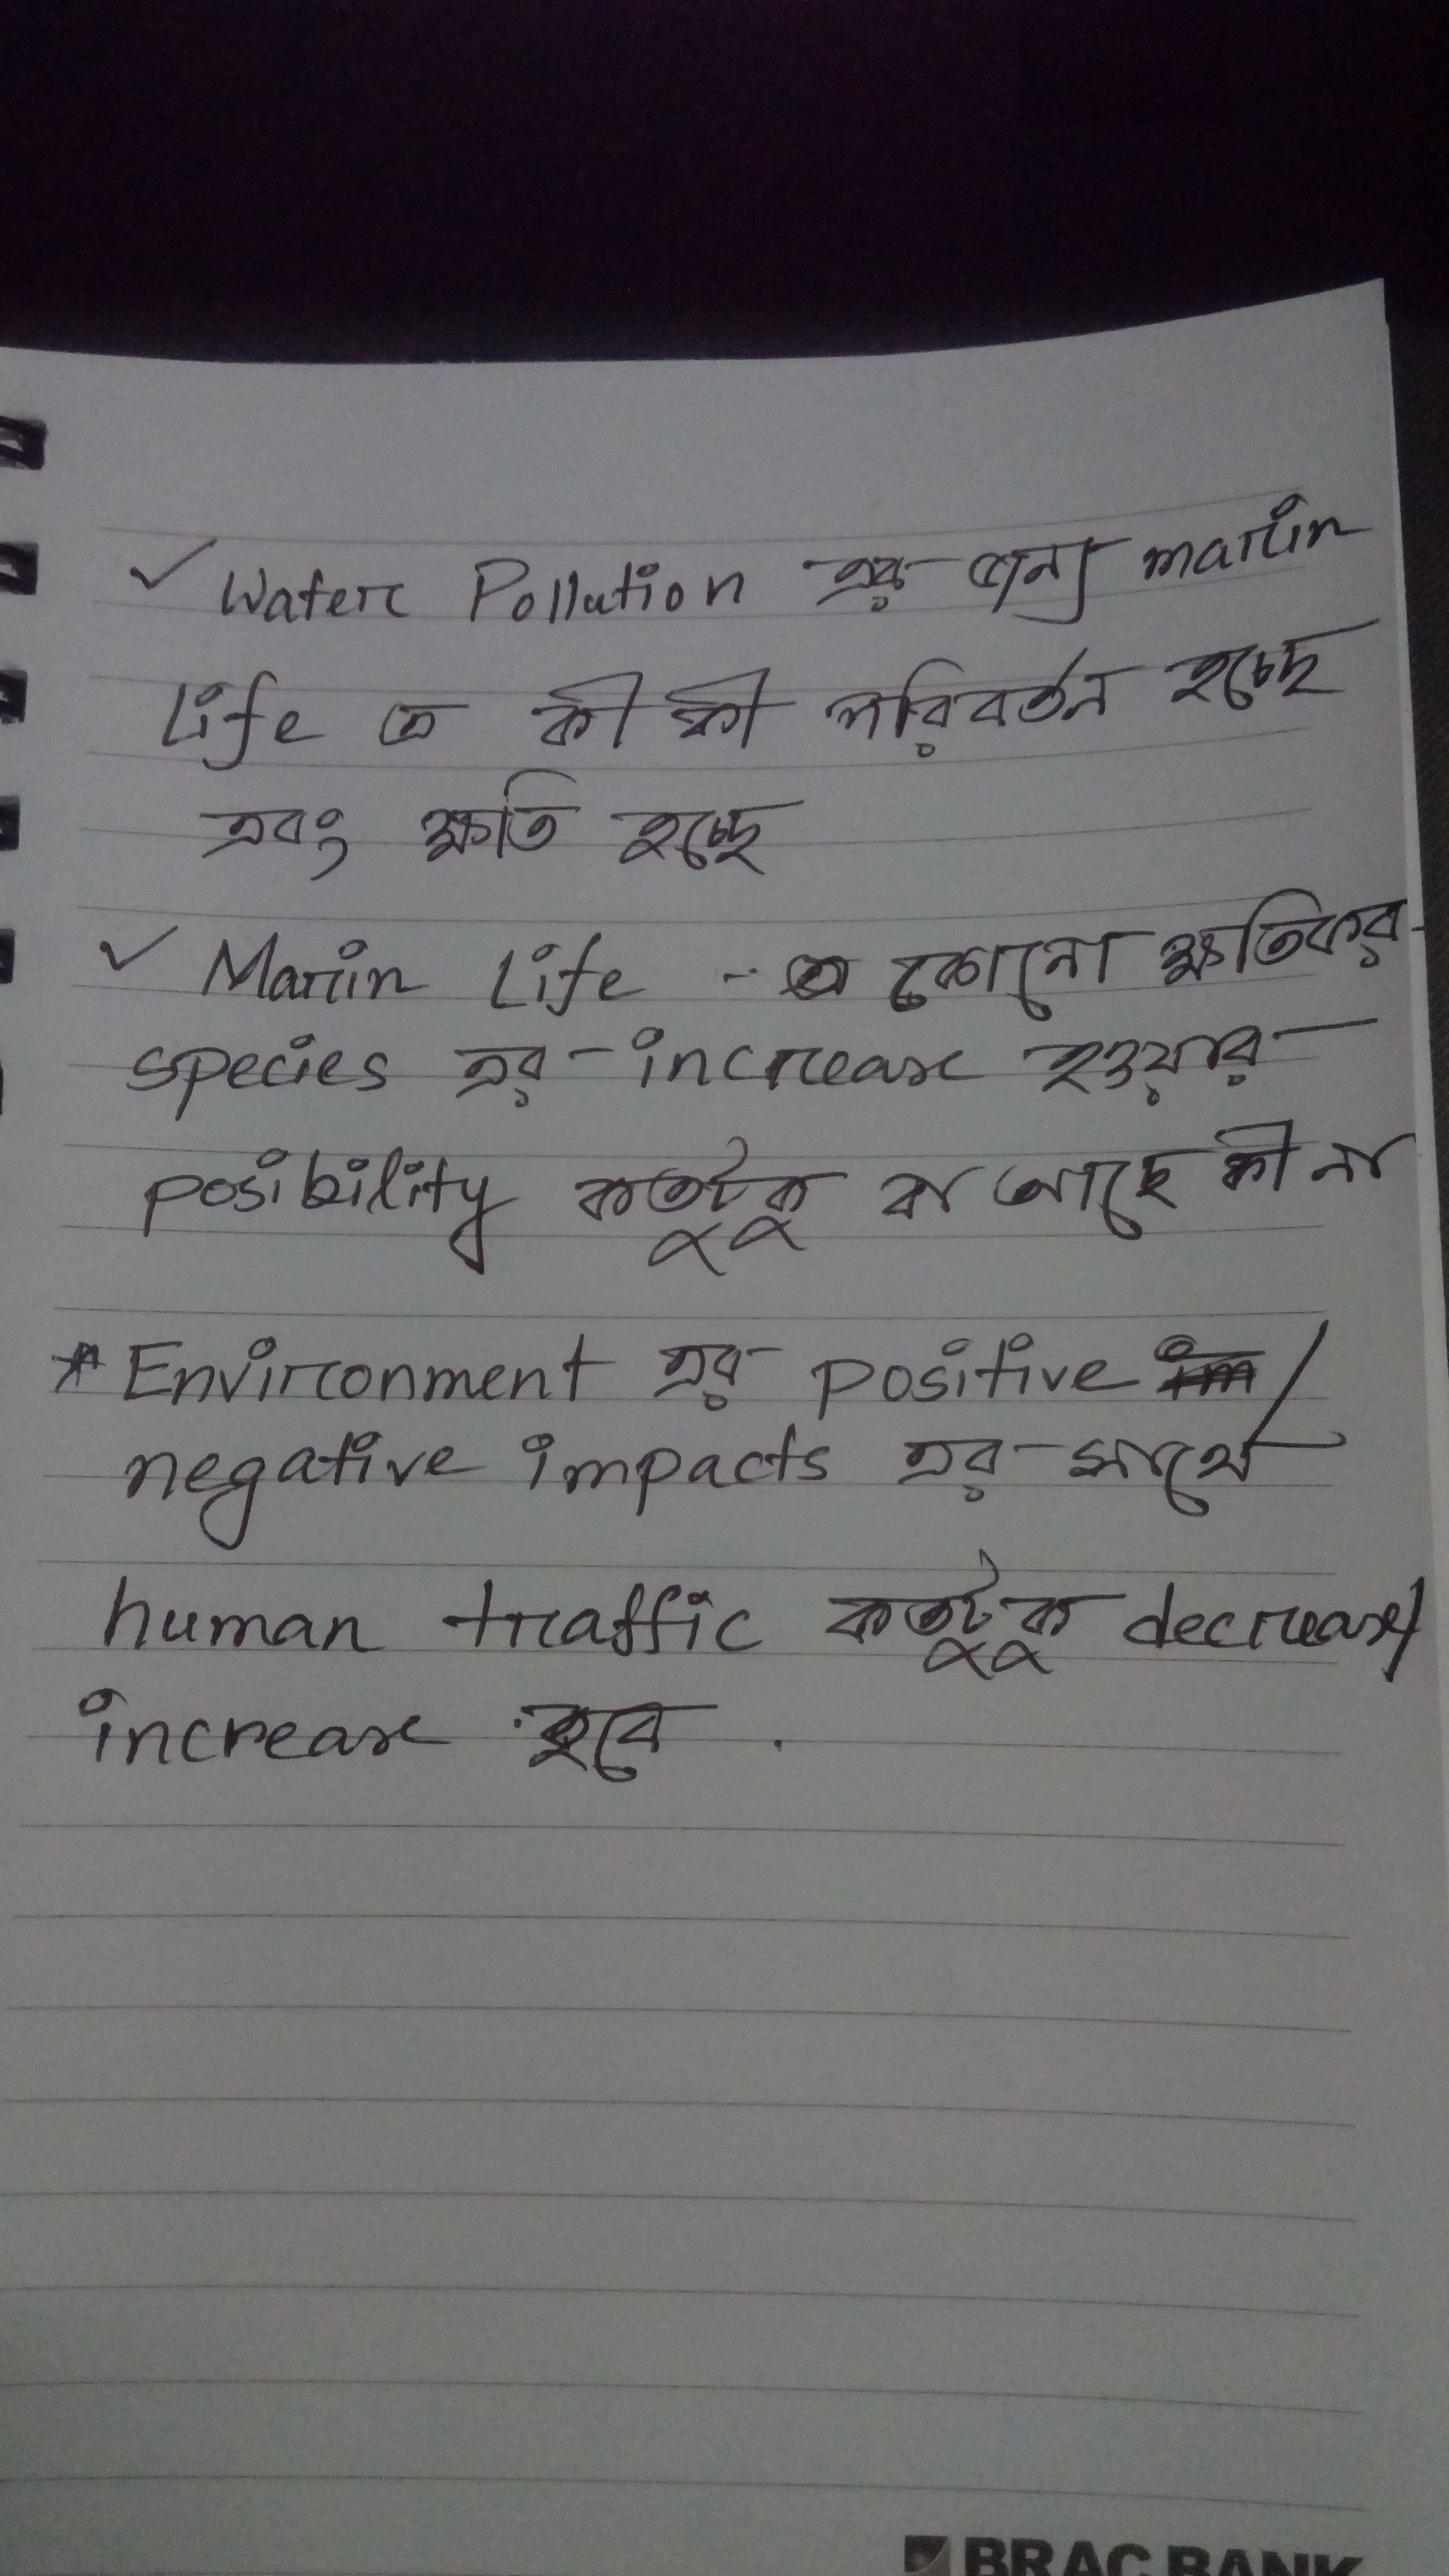 ✓ Water Pollution এর জন্য marin
Life তে কী কী পরিবর্তন হচ্ছে
এবং ক্ষতি হচ্ছে
✓ Marin Life - এ কোনো ক্ষতিকর
species এর increase হওয়ার
posibility কতটুকু বা আছে কী না
* Environment এর positive /
negative impacts এর সাথে
human traffic কতটুকু decrease/
increase হবে .
BRAC BANK